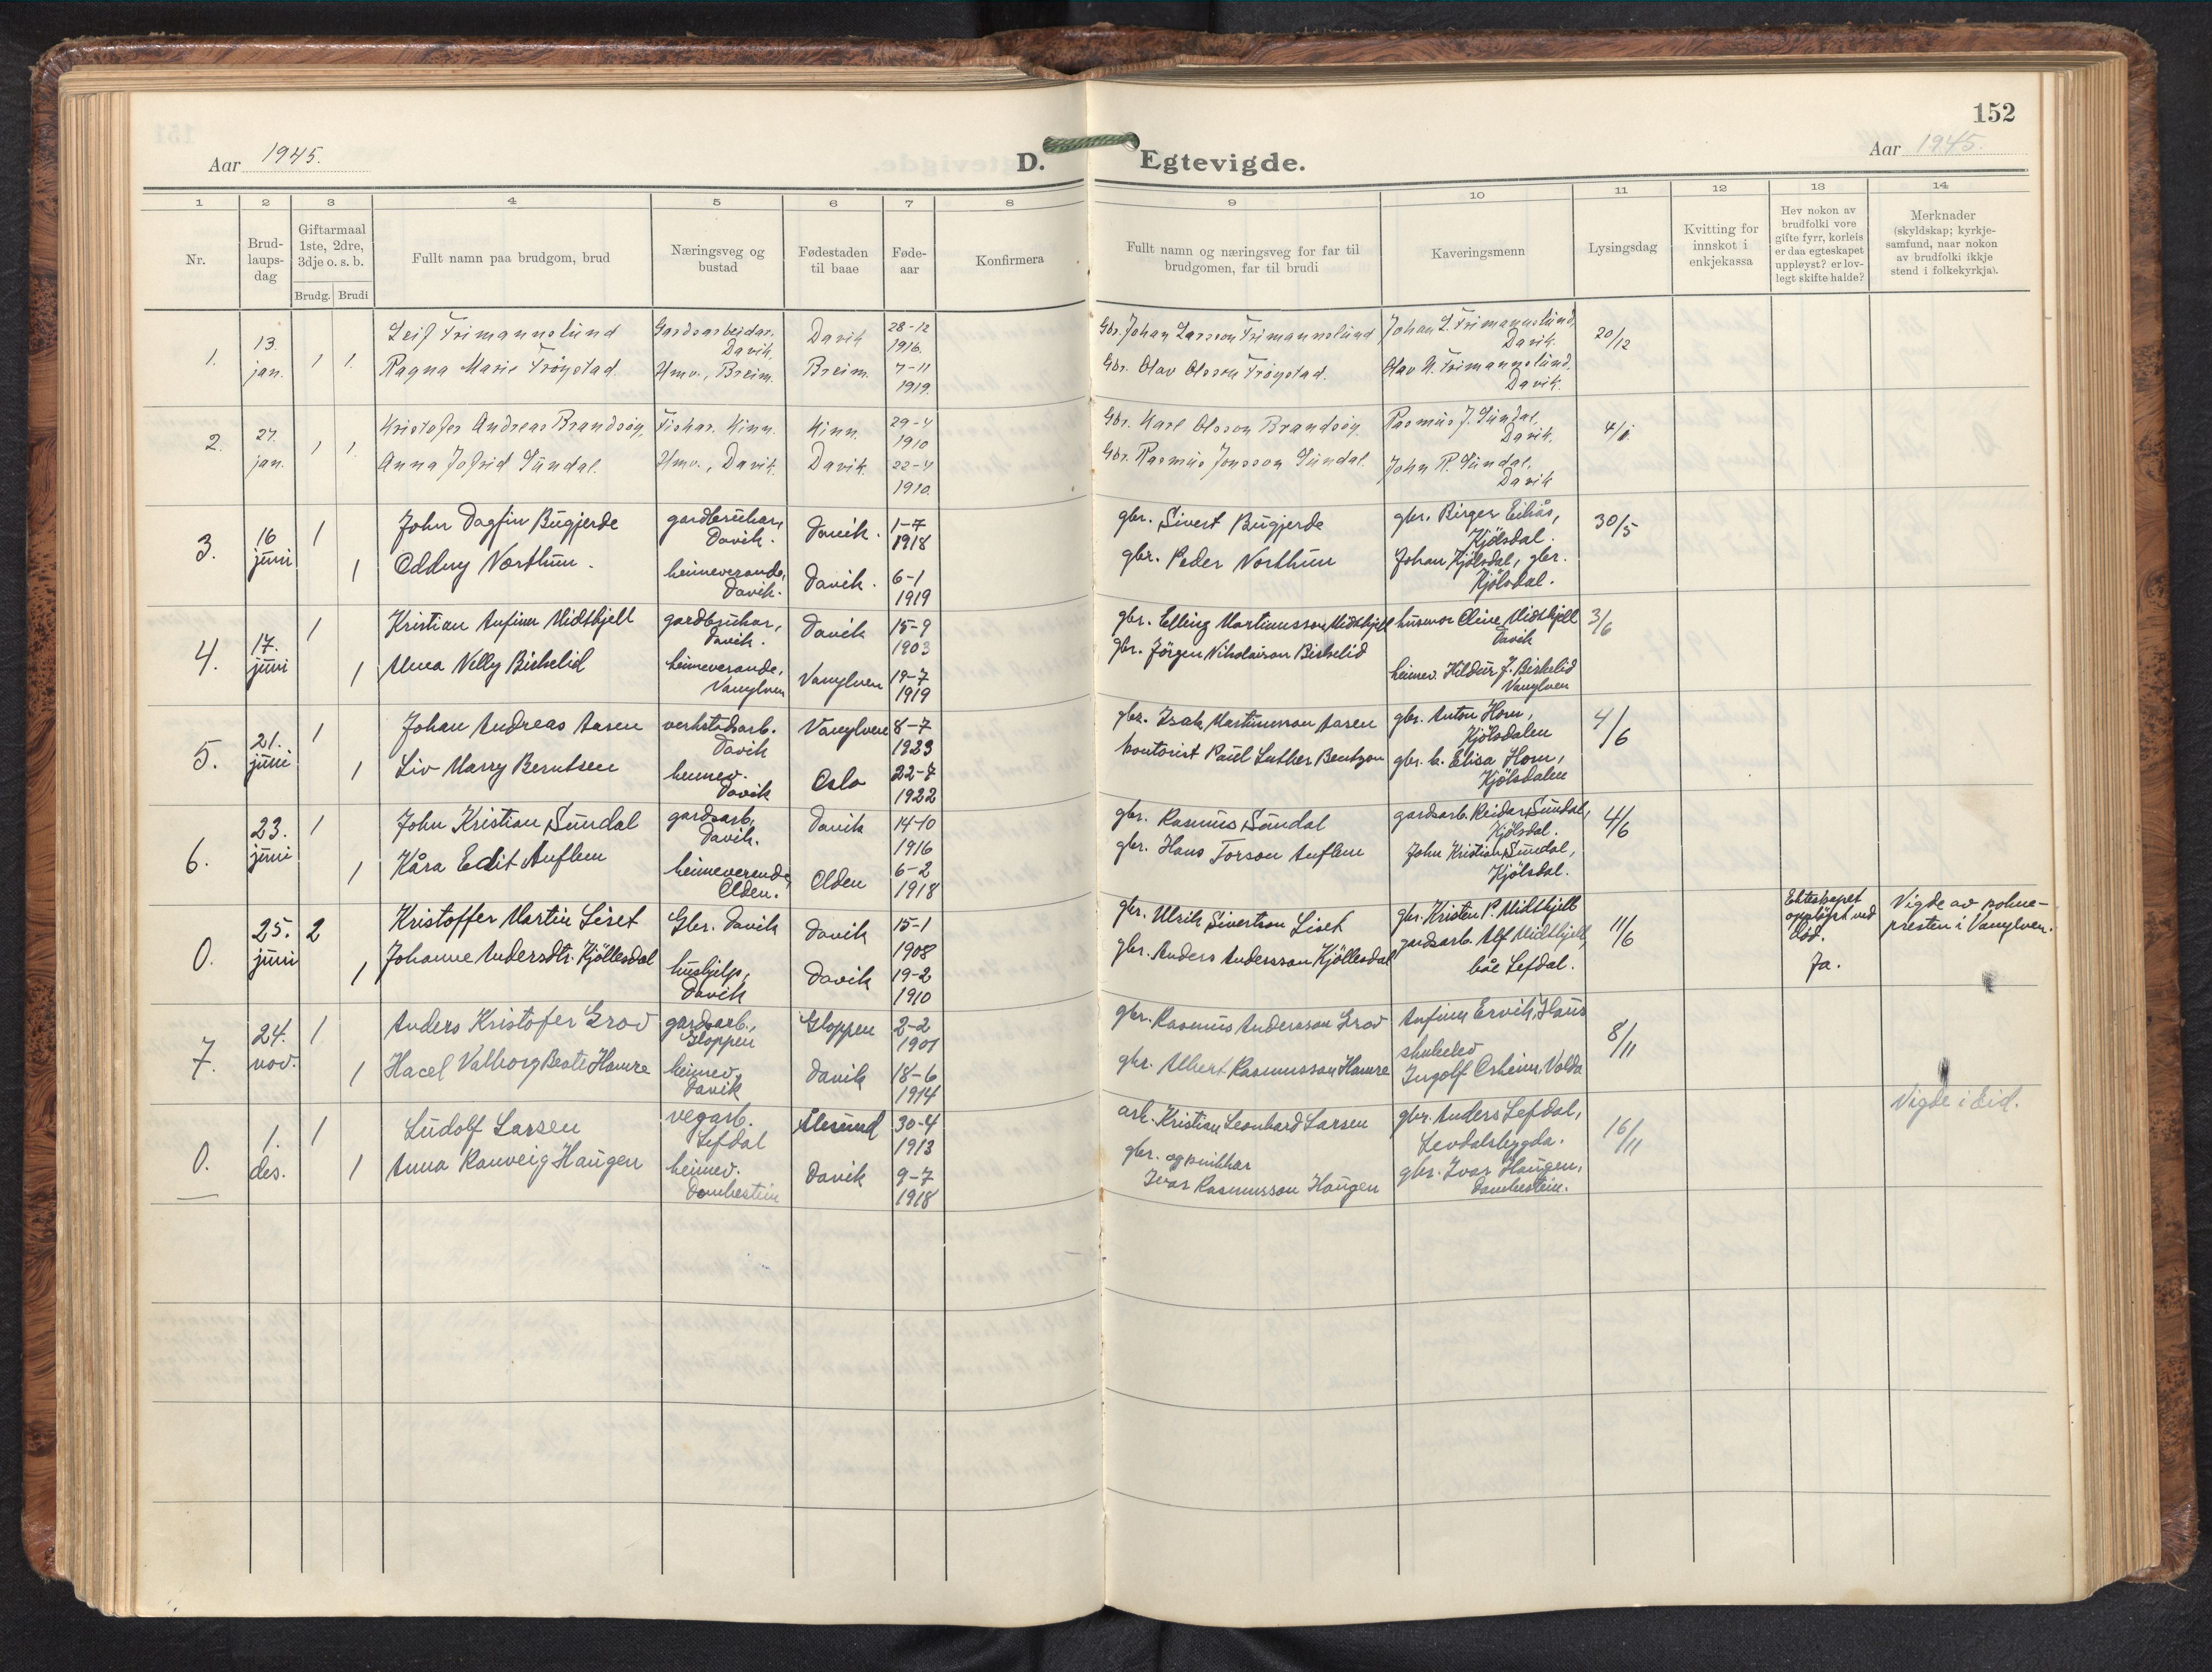 152
Aar 1945.
D. Egtevigde.
Aar 1945.
1 2 3 4 5 6 7 8 9 10 11 12 13 14
Nr.
Brud-
laups-
dag
Giftarmaal
1ste, 2dre,
3dje o. s. b.
Brudg. Brudi
Fullt namn paa brudgom, brud
Næringsveg og
bustad
Fødestaden
til baae
Føde-
aar
Konfirmera
Fullt namn og næringsveg for far til
brudgomen, far til brudi
Kaveringsmenn
Lysingsdag
Kvitting for
innskot i
enkjekassa
Hev nokon av
brudfolki vore
gifte fyrr, korleis
er daa egteskapet
uppløyst? er lov-
legt skifte halde?
Merknader
(skyldskap; kyrkje-
samfund, naar nokon
av brudfolki ikkje
stend i folkekyrkja).
1. 13. jan. 1 1.
Leif Frimannslund Gardsarbeidar, Davik, Davik 28-12 1916.
Gbr. Johan Larsson Frimannslund Johan L. Frimannslund, Davik. 20/12
Ragna Marie Frøystad. Hmv., Breim. Breim. 7-11 1919.
Gbr. Olav Olsson Frøystad. Olav A. Frimannslund, Davik.
2. 27. jan. 1 1.
Kristofer Andreas Brandsøy, Fiskar. Kinn. Kinn. 29-4 1910
Gbr. Karl Olsson Brandsøy. Rasmus J. Sundal, Davik. 4/1.
Anna Jofrid Sundal. Hmv., Davik. Davik. 22-4 1910.
Gbr. Rasmus Jonsson Sundal. John R. Sundal, Davik
3. 16 juni 1
John Dagfin Bugjerde gardbrukar, Davik. Davik. 1-7 1918
gbr. Sivert Bugjerde gbr. Birger Eikås, Kjölsdal. 30/5
1 Oddny Northun. heimeverande, Davik. Davik. 6-1 1919
gbr. Peder Northun Johan Kjölsdal, gbr. Kjölsdal.
4. 17. juni 1
Kristian Anfinn Midthjell gardbrukar, Davik. Davik 15-9 1903
gbr. Elling Martinusson Midthjell husmor Oline Midthjell Davik 3/6
1 Alma Nelly Birkelid heimeverande, Vanylven Vanylven 19-7 1919
gbr. Jörgen Nikolaison Birkelid heimev. Hildur J. Birkelid Vanylven
5. 21. juni 1
Johan Andreas Aasen verkstadarb. Davik Vanylven 8-7 1923
gbr. Isak Martinusson Aasen gbr. Anton Horn, Kjölsdalen 4/6
1 Liv Marry Berntsen heimev. Davik Oslo 22-7 1922
kontorist Paul Luther Bentzon gbr. k. Elisa Horn, Kjölsdalen
6. 23. juni 1
John Kristian Sundal gardsarb, Davik. Davik 14-10 1916
gbr. Rasmus Sundal gardsarb. Reidar Sundal, Kjölsdal. 4/6
1 Kåra Edit Auflem heimeverende, Olden. Olden 6-2 1918
gbr. Hans Torson Auflem John Kristian Sundal, Kjölsdal.
0. 25. juni 2
Kristoffer Martin Liset Gbr. Davik Davik 15-1 1908
gbr. Ulrik Sivertson Liset gbr. Kristen P. Midthjell 11/6
Ekteskapet oppløyst ved död. Ja.
Vigde av sokne-
presten i Vanylven.
1 Johanne Andersdtr. Kjöllesdal hushjelp, Davik Davik 19-2 1910
gbr. Anders Andersson Kjöllesdal gardsarb. Alf Midthjell, båe Lefdal.
7. 24. nov. 1
Anders Kristofer Grov gardsarb., Gloppen Gloppen 2-2 1901
gbr. Rasmus Andersson Grov Anfinn Ervik, Haus 8/11
1 Hacel Valborg Beate Hamre heimev, Davik Davik 18-6 1914
gbr. Albert Rasmusson Hamre skulelev Ingolf Osheim, Volda
0. 1. des. 1
Ludolf Larsen vegarb. Lefdal Ålesund 30-4 1913
arb. Kristian Leonhard Larsen gbr. Anders Lefdal, Levdalsbygda. 16/11
Vigde i Eid.
1 Anna Ranveig Haugen heimev. Dombestein Davik 9-7 1918
gbr. og snikkar Ivar Rasmusson Haugen gbr. Ivar Haugen, Dombestein.